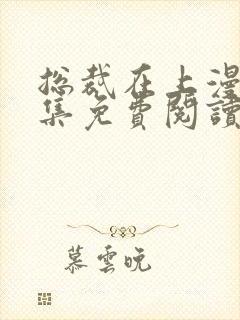 总裁在上漫
集免費閱讀
慕雲晚